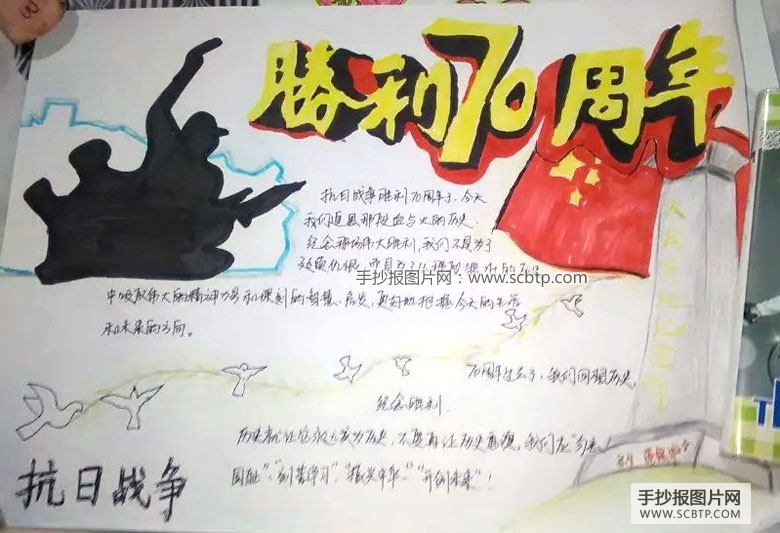 勝利70周年
抗日战争胜利70周年了,今天
我们追思那段血与火的历史.
纪念那场伟大胜利,我们不是为了
延续仇恨,而是为了从
手抄报图片网:www.sctbp.com
中吸取伟大的精神力量和深刻的智慧、启发,更好地把握今天的生活
和未来的方向。
70周年过去了,我们回顾历史,
纪念胜利.
历史就让它永远成为历史,不要再让历史重演,我们应“勿忘
国耻”、“刻苦学习”“振兴中华”“开创未来”!
抗日战争
手抄报图片网
WWW.SCBTP.COM